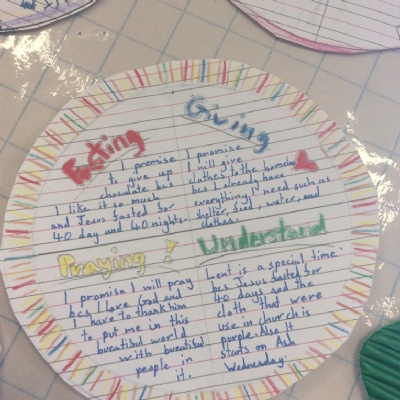 Fasting
I promise
to give up
chocolate bcs
I like it so much
and Jesus fasted for
40 day and 40 nights.
Giving
I promise
I will give
clothes to the homeless
bcs I already have
everything I need such as
shelter, food, water, and
clothes.
Praying!
I promise I will pray
bcs I love God and
I have to thank him
to put me in this
bueatiful world
with bueatiful
people in
it.
Understand
Lent is a special time
bcs Jesus fasted for
40 days and the
cloth that were
use in church is
purple. Also It
starts on Ash
Wednesday.